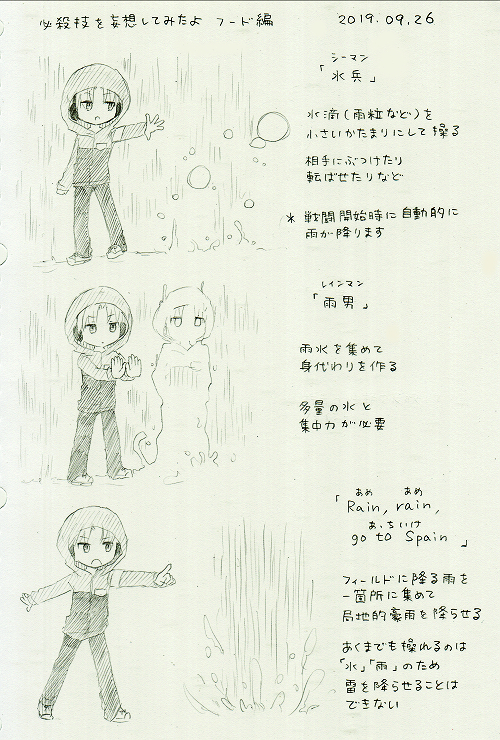 必殺技を妄想してみたよ フード編
2019.09.26
シーマン
「水兵」
水滴(雨粒など)を
小さいかたまりにして操る
相手にぶつけたり
転ばせたりなど
* 戦闘開始時に自動的に
雨が降ります
レインマン
「雨男」
雨水を集めて
身代わりを作る
多量の水と
集中力が必要
あめ あめ
「Rain, rain,
あっちいけ
go to Spain」
フィールドに降る雨を
一箇所に集めて
局地的豪雨を降らせる
あくまでも操れるのは
「水」「雨」のため
雷を降らせることは
できない